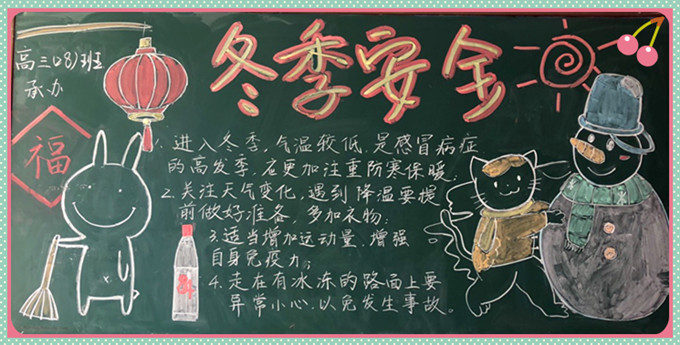 冬季安全
高三(28)班
承办
福
1. 进入冬季,气温较低,是感冒病症
的高发季,应更加注重防寒保暖;
2. 关注天气变化,遇到降温要提
前做好准备,多加衣物;
3. 适当增加运动量,增强
自身免疫力;
4. 走在有冰冻的路面上要
异常小心,以免发生事故。